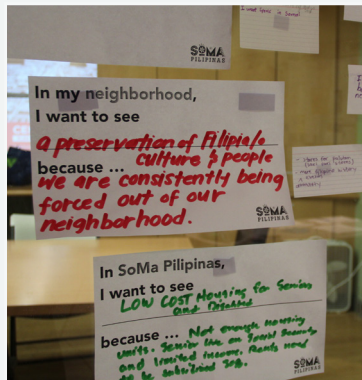 I want
SOMA
PILIPINAS
In my neighborhood,
I want to see
a preservation of Filipin/o
culture & people
because ...
we are consistently being
forced out of our
neighborhood.
SOMA
PILIPINAS
In SoMa Pilipinas,
I want to see
LOW COST Housing for Seniors
and Disabled
because ... Not enough housing
units. Senior live on Social Security
and limited income. Rents need
to be subsidized
SOMA
PILIPINAS